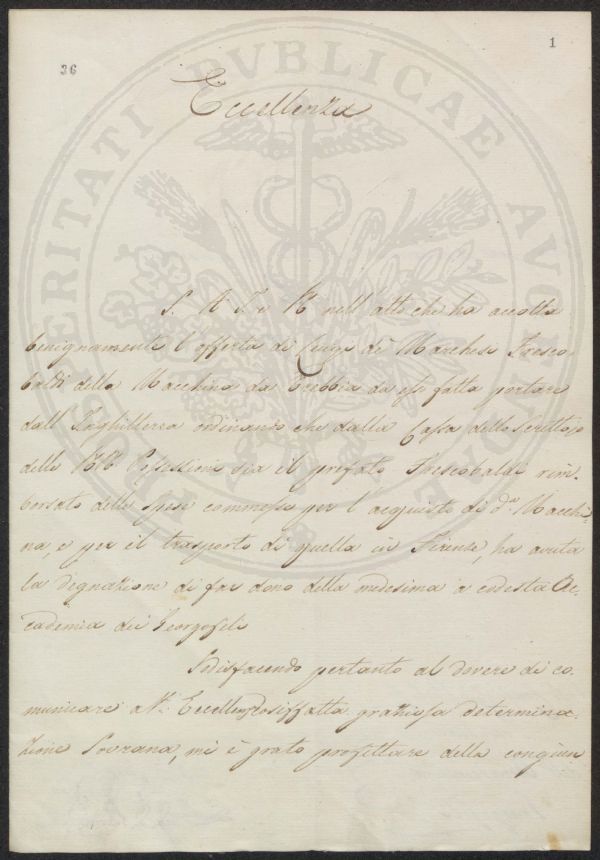 1
36
Eccellenza
PROSPERITATI PVBLICAE AVGENDAE
S. A. I. e R. nell'atto che ha accolta
benignamente l'offerta di Luigi de Marchesi Fresco-
baldi della Macchina da Trebbia da esso fatta portare
dall'Inghilterra ordinando che dalla Cassa dello Scrittoio
delle RR Possessioni sia il prefato Frescobaldi rim-
borsato delle spese commesse per l'acquisto di d.ta Macchi-
na, e per il trasporto di quella in Firenze, ha avuta
la degnazione di far dono della medesima a codesta Ac-
cademia dei Georgofili
Sodisfacendo pertanto al dovere di co-
municare a V. Eccellenza siffatta graziosa determina-
zione Sovrana, mi è grato profittare della congiun